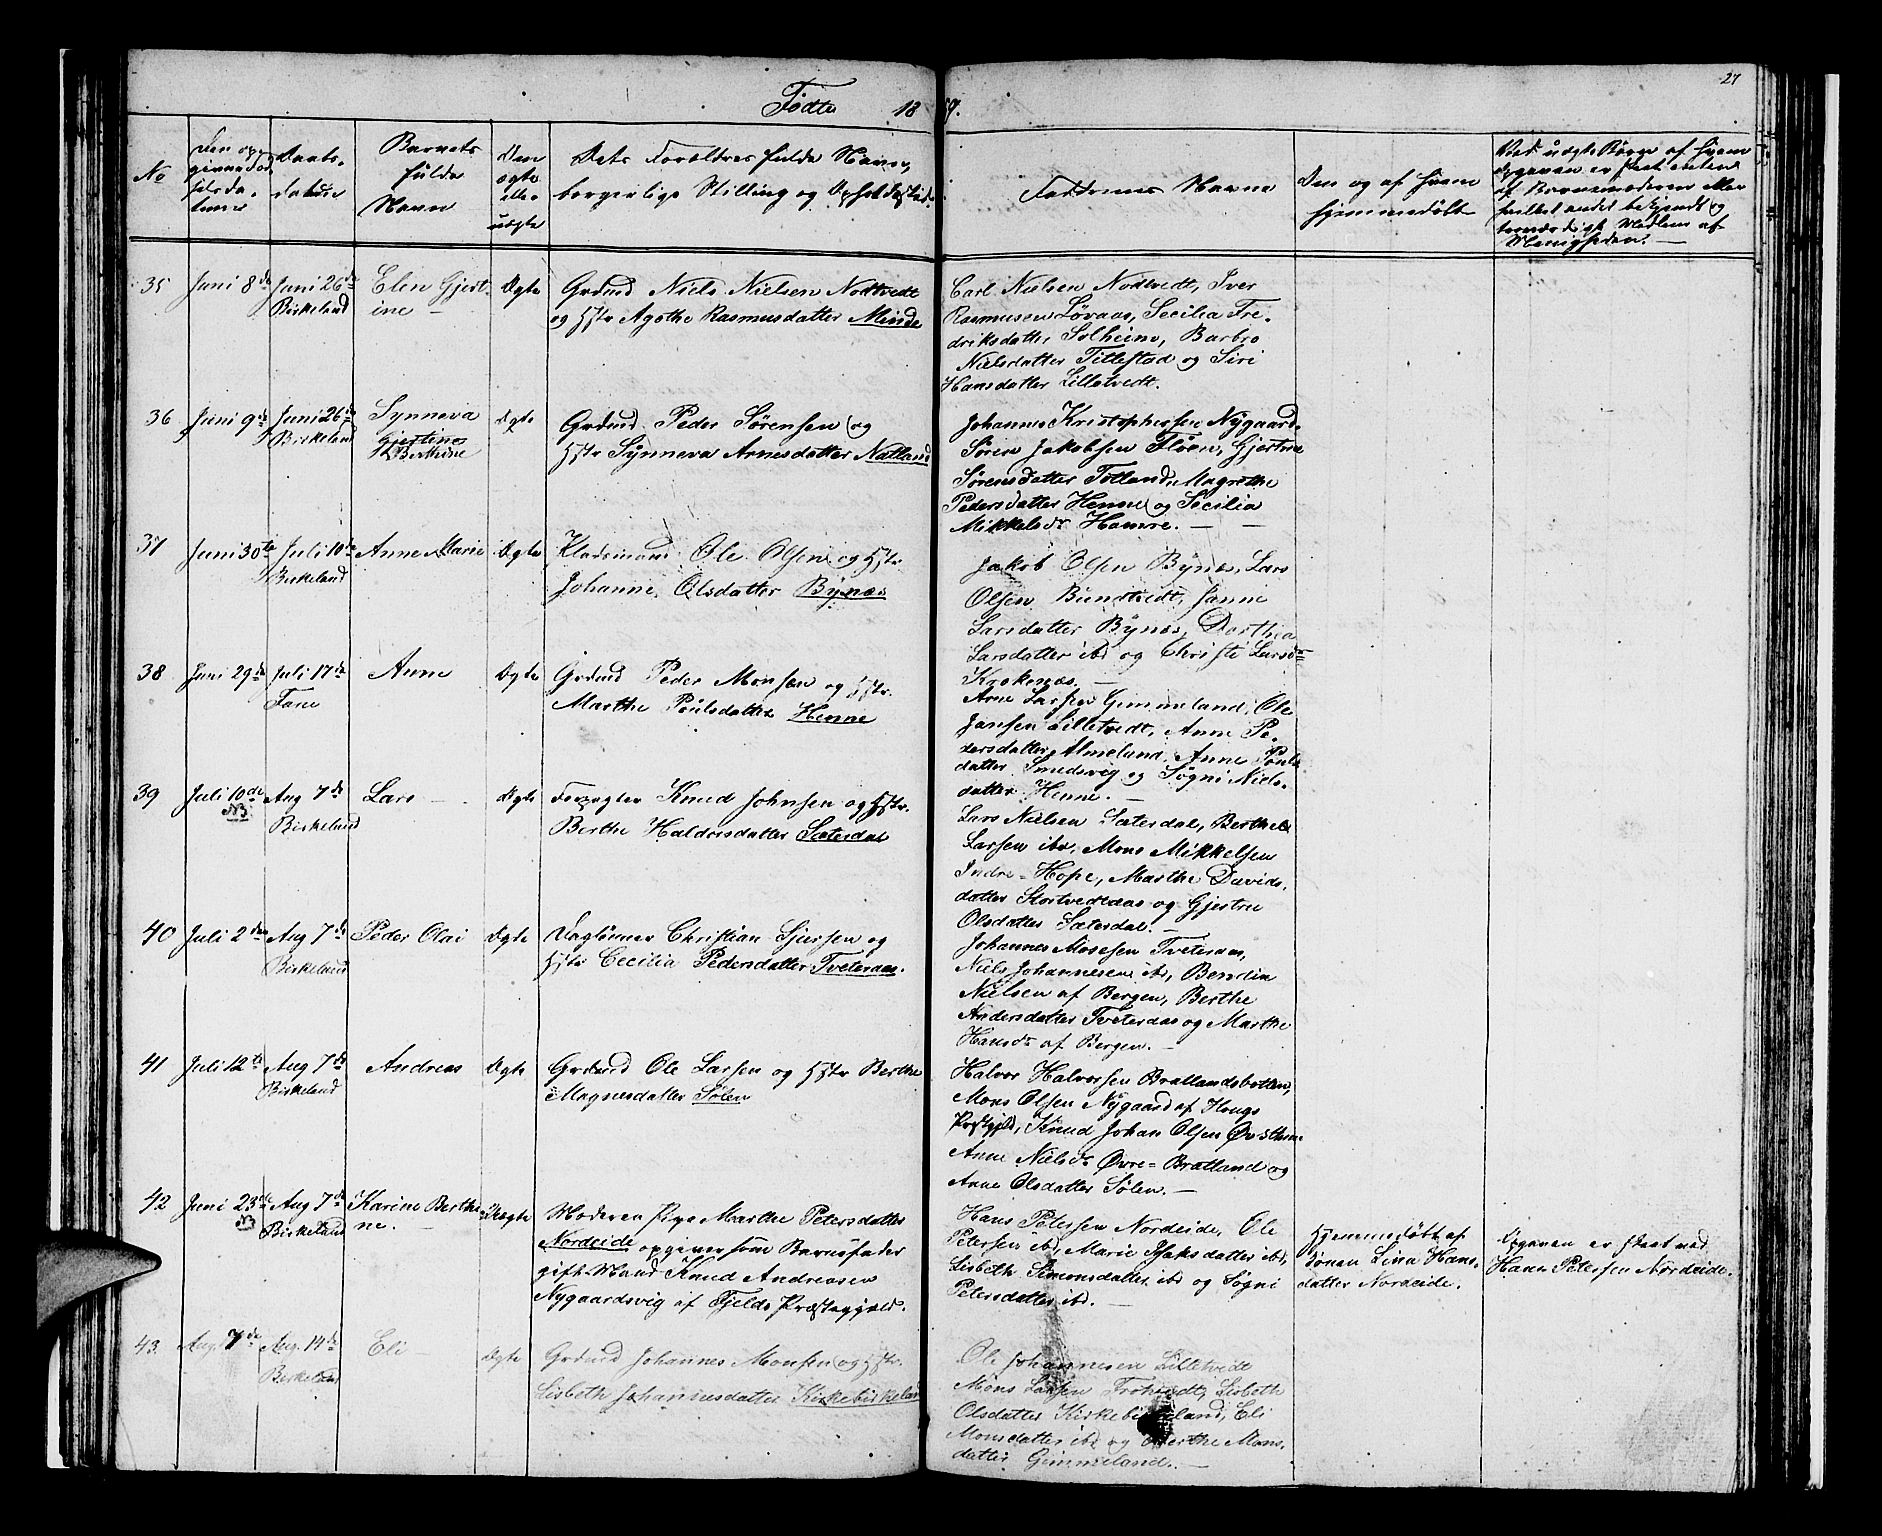 27
Fødte 18 59.
No
Den op-
givne Fød-
selsda-
tum
Daabs-
datum
Barnets
fulde
Navn
Om
ægte
eller
uægte
Dets Forældres fulde Navne,
borgerlige Stilling og Opholdssted.
Faddernes Navne
Om og af hvem
hjemmedøbt
Ved uægte Børn af hvem
Opgaven er skeet enten
af Barnemoderen eller
hvilket andet bekjendt og
troværdigt Medlem af
Menigheden. —
35 Juni 8de Juni 26de Elen Gjert- Ægte Grdmd Niels Nielsen Nodtvedt
Birkeland ine — og Hstr Agothe Rasmusdatter Minde
Carl Nielsen Nodtvedt, Iver
Rasmussen Løvaas, Secilia Fre-
driksdatter Solheim, Barbro
Nielsdatter Tillestad og Siri
Hansdatter Lilletvedt.
36 Juni 9de Juni 26de Synneva Ægte Grdmd Peder Sørensen og
Birkeland Gjertine
Berthine Hstr Synneva Arnesdatter Natland
Johannes Kristophersen Nygaard.
Søren Jakobsen Fløen, Gjertine
Sørensdatter Totland, Magrethe
Pedersdatter Henne og Secilia
Mikkelsdr Hamre. — —
37 Juni 30te Juli 10de Anne Marie Ægte Pladsmand Ole Olsen og Hstr.
Birkeland Johanne Olsdatter Bynæs
Jakob Olsen Bynæs, Lars
Olsen Bundtvedt, Hanne
Larsdatter Bynæs, Dorthea
Larsdatter ibd og Christi Larsdr
Kroknæs. —
38 Juni 29de Juli 17de Anne Ægte Grdmd Peder Monsen og Hstr.
Fane Marthe Poulsdatter Henne
Arne Larsen Gimmeland, Ole
Jansen Lilletvedt, Anne Pe-
dersdatter Almeland, Anne Pouls-
datter Smedsvig og Søgni Niels-
datter Henne. —
39 Juli 10de Aug 7de Lars — Ægte Forpagter Knud Johnsen og Hstr.
NB. Birkeland Berthe Haldorsdatter Sæterdal
Lars Nielsen Sæterdal, Berthel
Larsen ibd, Mons Mikkelsen
Indre-Hope, Marthe Davids-
datter Stortvedtaas og Gjertru
Olsdatter Sæterdal. —
40 Juli 2den Aug 7de Peder Olai Ægte Daglønner Christian Sjursen og
Birkeland Hstr Cecilia Pedersdatter Tveteraas.
Johannes Mosesen Tveteraas,
Niels Johannesen ibd, Bendix
Nielsen af Bergen, Berthe
Andersdatter Tveteraas og Marthe
Hansdr af Bergen. —
41 Juli 12te Aug 7de Andreas Ægte Grdmd Ole Larsen og Hstr Berthe
Birkeland Magnesdatter Sølen
Halvor Halvorsen Bratlandsbotten,
Mons Olsen Nygaard af Hougs
Præstgjld, Knud Johan Olsen Øvsthuse
Anne Nielsdr Øvre-Bratland og
Anne Olsdatter Sølen. —
42 Juni 23de Aug 7de Karine Berthi- Uægte Moderen Pige Marthe Petersdatter
NB Birkeland ne. — Nordeide opgiver som Barnefader
gift Mand Knud Andreasen
Nygaardsvig af Fjelds Præstegjeld.
Hans Petersen Nordeide, Ole
Petersen ibd, Marie Isaksdatter ibd,
Lisbeth Simonsdatter ibd og Søgni
Petersdatter ibd. —
Hjemmedøbt af
Konen Lina Hans-
datter Nordeide.
Opgaven er skeet ved
Hans Petersen Nordeide.
43. Aug. 7de Aug. 14de Eli — Ægte Grdmd Johannes Monsen og Hstr.
Birkeland Lisbeth Johannesdatter Kirkebirkeland
Ole Johannesen Lilletvedt
Mons Larsen Trohvedt, Lisbeth
Olsdatter Kirkebirkeland, Eli
Monsdatter ibd og Berthe Mons-
datter Gimmeland. —